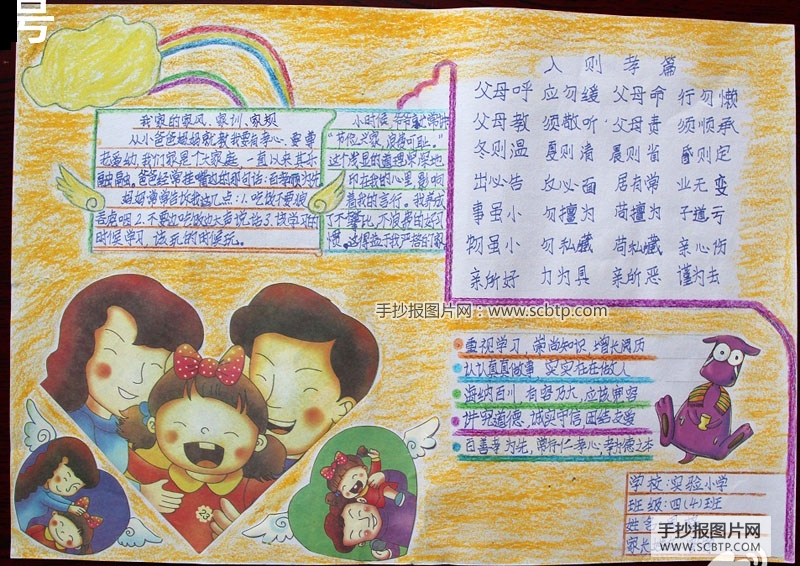 号
我家的家风、家训、家规
从小爸爸妈妈就教我要有孝心、要尊
老爱幼,我们家是个大家庭,一直以来其乐
融融。爸爸经常挂嘴边的那句话:百孝顺为先
妈妈常常告诉我这几点:1.吃饭不要狼
吞虎咽 2.不要边吃饭边大声说话 3.该学习的
时候学习,该玩的时候玩。
小时候,爷爷就常讲
"节俭兴家,浪费可耻。"
这个浅显的道理深深地
印在我的心里,影响
着我的言行。我养成
了不攀比,不浪费的好习
惯。这得益于我严格的家
入则孝篇
父母呼 应勿缓 父母命 行勿懒
父母教 须敬听 父母责 须顺承
冬则温 夏则凊 晨则省 昏则定
出必告 反必面 居有常 业无变
事虽小 勿擅为 苟擅为 子道亏
物虽小 勿私藏 苟私藏 亲心伤
亲所好 力为具 亲所恶 谨为去
手抄报图片网:www.scbtp.com
重视学习,崇尚知识,增长阅历
认认真真做事,实实在在做人
海纳百川,有容乃大,应该宽容
讲究道德,诚实守信,团结友爱
百善孝为先,常行仁孝心,孝为德之本
学校:实验小学
班级:四(4)班
姓名
家长
手抄报图片网
WWW.SCBTP.COM